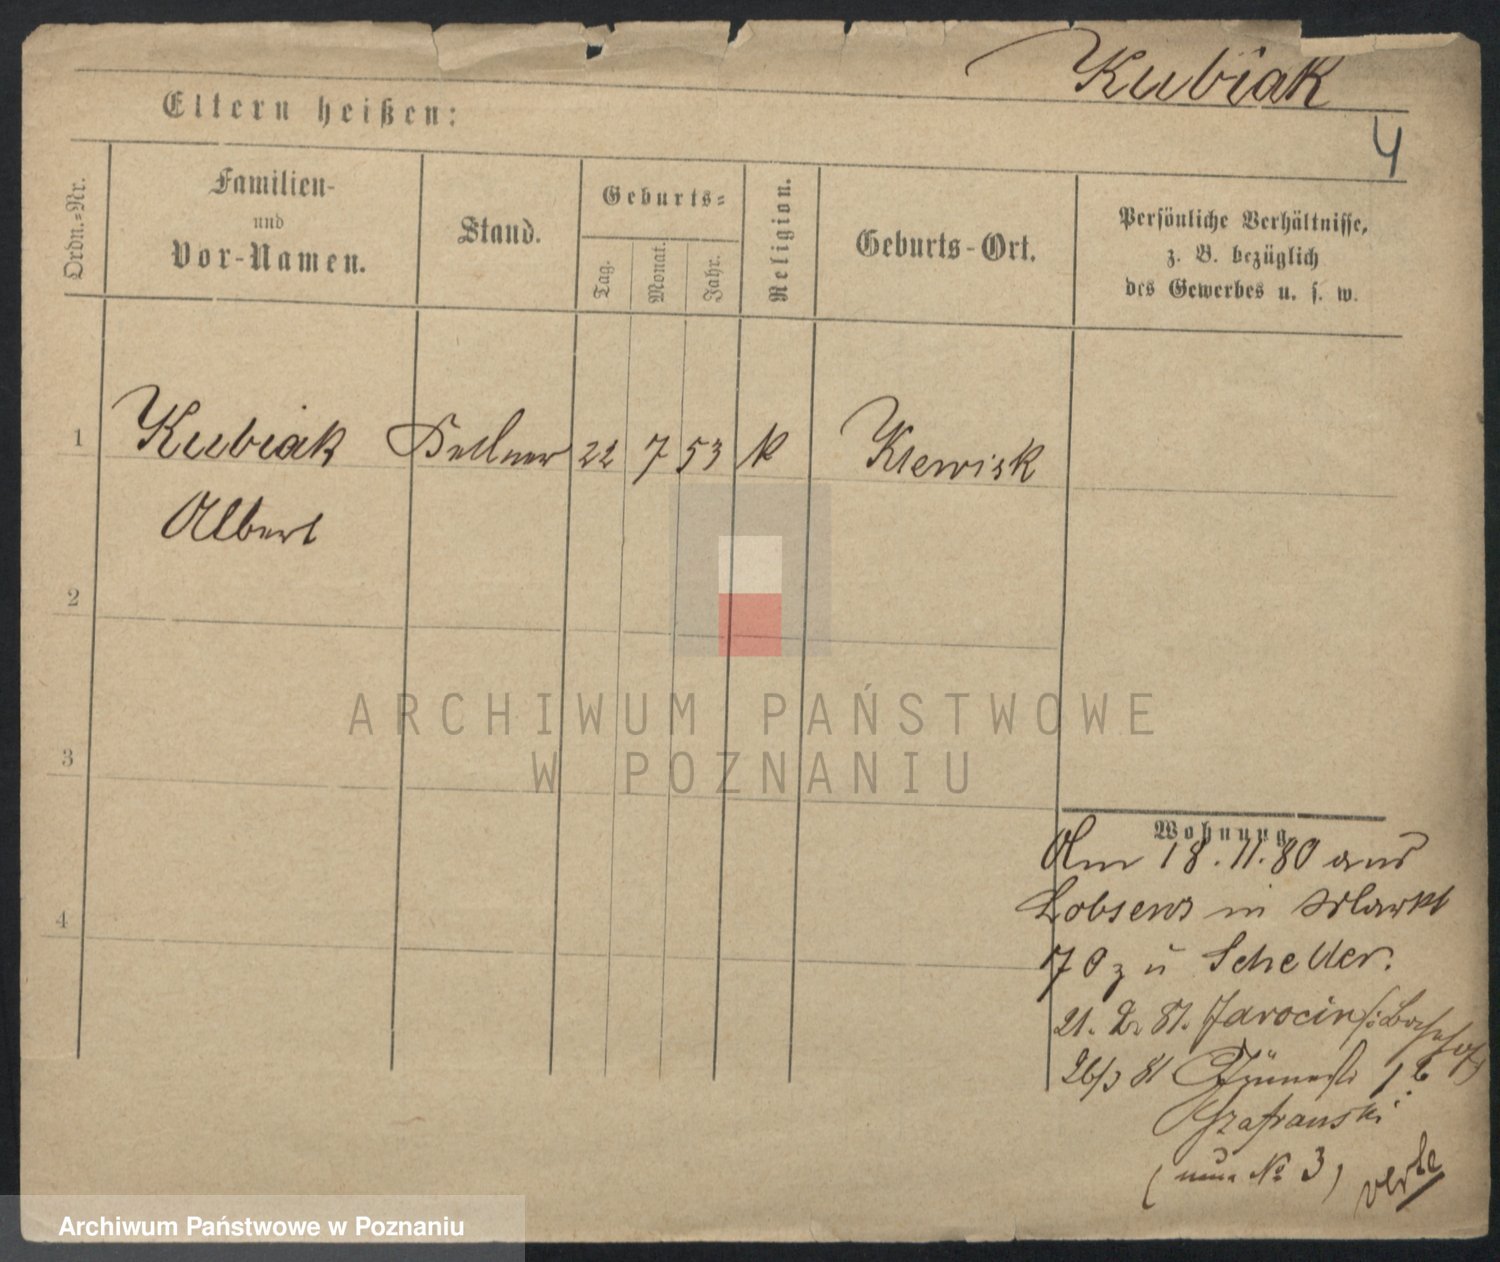 Kubiak
Eltern heißen:
4
Ordn.=Nr.
Familien-
und
Vor-Namen.
Stand.
Geburts=
Tag.
Monat.
Jahr.
Religion.
Geburts-Ort.
Persönliche Verhältnisse,
z. B. bezüglich
des Gewerbes u. s. w.
1 Kubiak Kellner 22 7 53 k
Albert
2
3
4
ARCHIWUM PAŃSTWOWE
W POZNANIU
Wohnung.
Am 18. 11. 80 aus
Lobsens in Markt
70 zu Scheller.
21. 2. 81. Jarocin /: Bahnhof
26/3 81 12
Szafranski
(neue No 3) verte
Archiwum Państwowe w Poznaniu